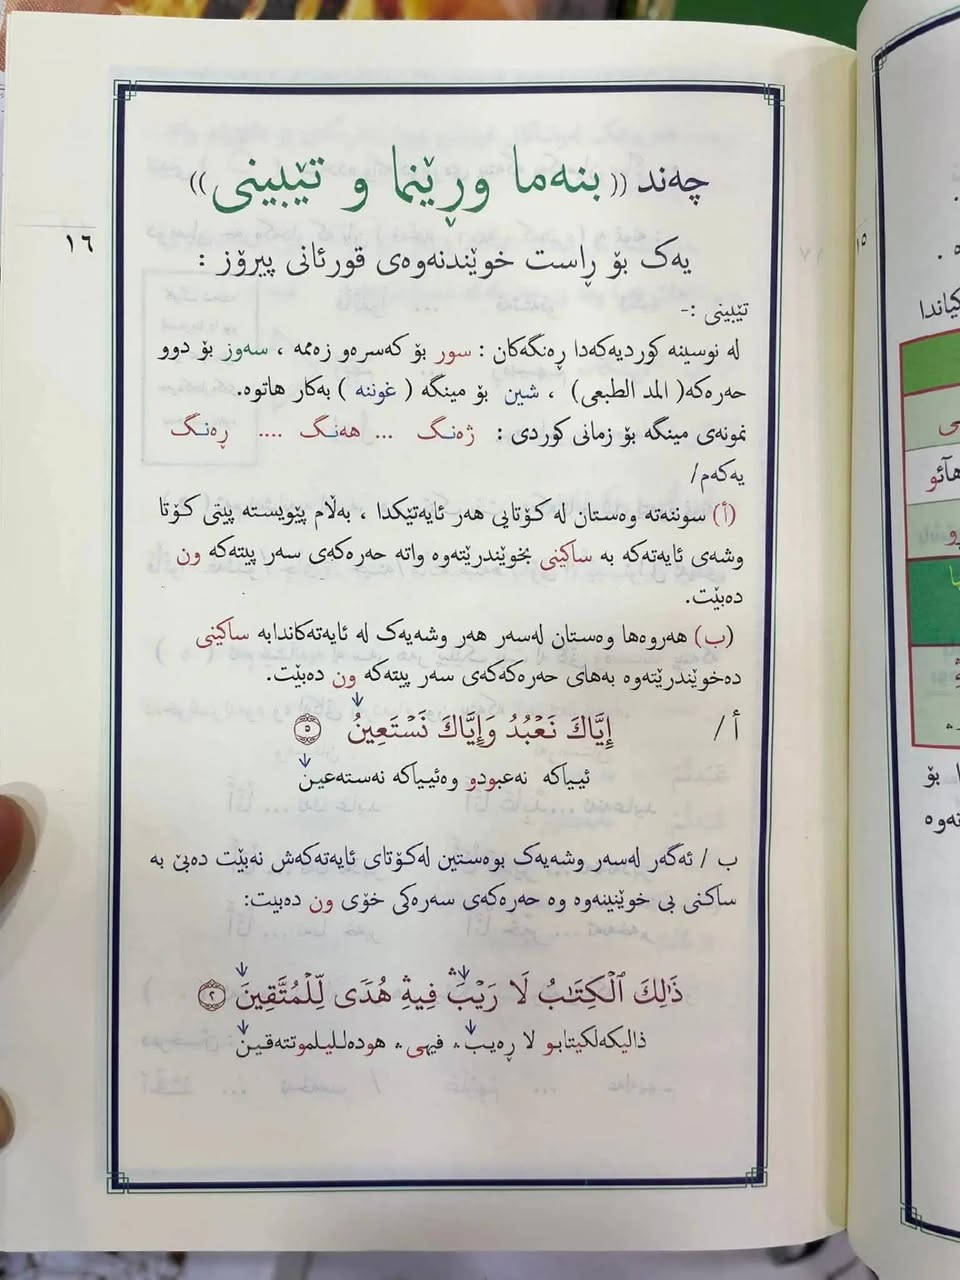 چەند (( بنەما وڕێنما و تێبینی ))
١٦
یەک بۆ ڕاست خوێندنەوەی قورئانی پیرۆز :
تێبینی :-
لە نوسینە کوردیەکەدا ڕەنگەکان : سور بۆ کەسرەو زەممە ، سەوز بۆ دوو
حەرەکە( المد الطبعی) ، شین بۆ مینگە ( غوننە ) بەکار هاتوە.
نمونەی مینگە بۆ زمانی کوردی : ژەنگ ... هەنگ .... ڕەنگ
یەکەم/
(أ) سوننەتە وەستان لە کۆتایی هەر ئایەتێکدا ، بەڵام پێویستە پیتی کۆتا
وشەی ئایەتەکە بە ساکینی بخوێندرێتەوە واتە حەرەکەی سەر پیتەکە ون
دەبێت.
(ب) هەروەها وەستان لەسەر هەر وشەیەک لە ئایەتەکاندابە ساکینی
دەخوێندرێتەوە بەهای حەرەکەکەی سەر پیتەکە ون دەبێت.
أ / إِيَّاكَ نَعۡبُدُ وَإِيَّاكَ نَسۡتَعِينُ ٥
ئیـیاکە نەعبودو وەئیـیاکە نەستەعیـن
ب / ئەگەر لەسەر وشەیەک بوەستین لەکۆتای ئایەتەکەش نەبێت دەبێ بە
ساکنی بی خوێنینەوە وە حەرەکەی سەرەکی خۆی ون دەبیت:
ذَٰلِكَ ٱلۡكِتَٰبُ لَا رَيۡبَۛ فِيهِۛ هُدٗى لِّلۡمُتَّقِينَ ٢
ذالیکەلکیتابو لا ڕەیبۛ فیهیۛ هودەلـلیلموتتەقیـن
١٥
کیاندا
هآئو
بۆ
تەوە